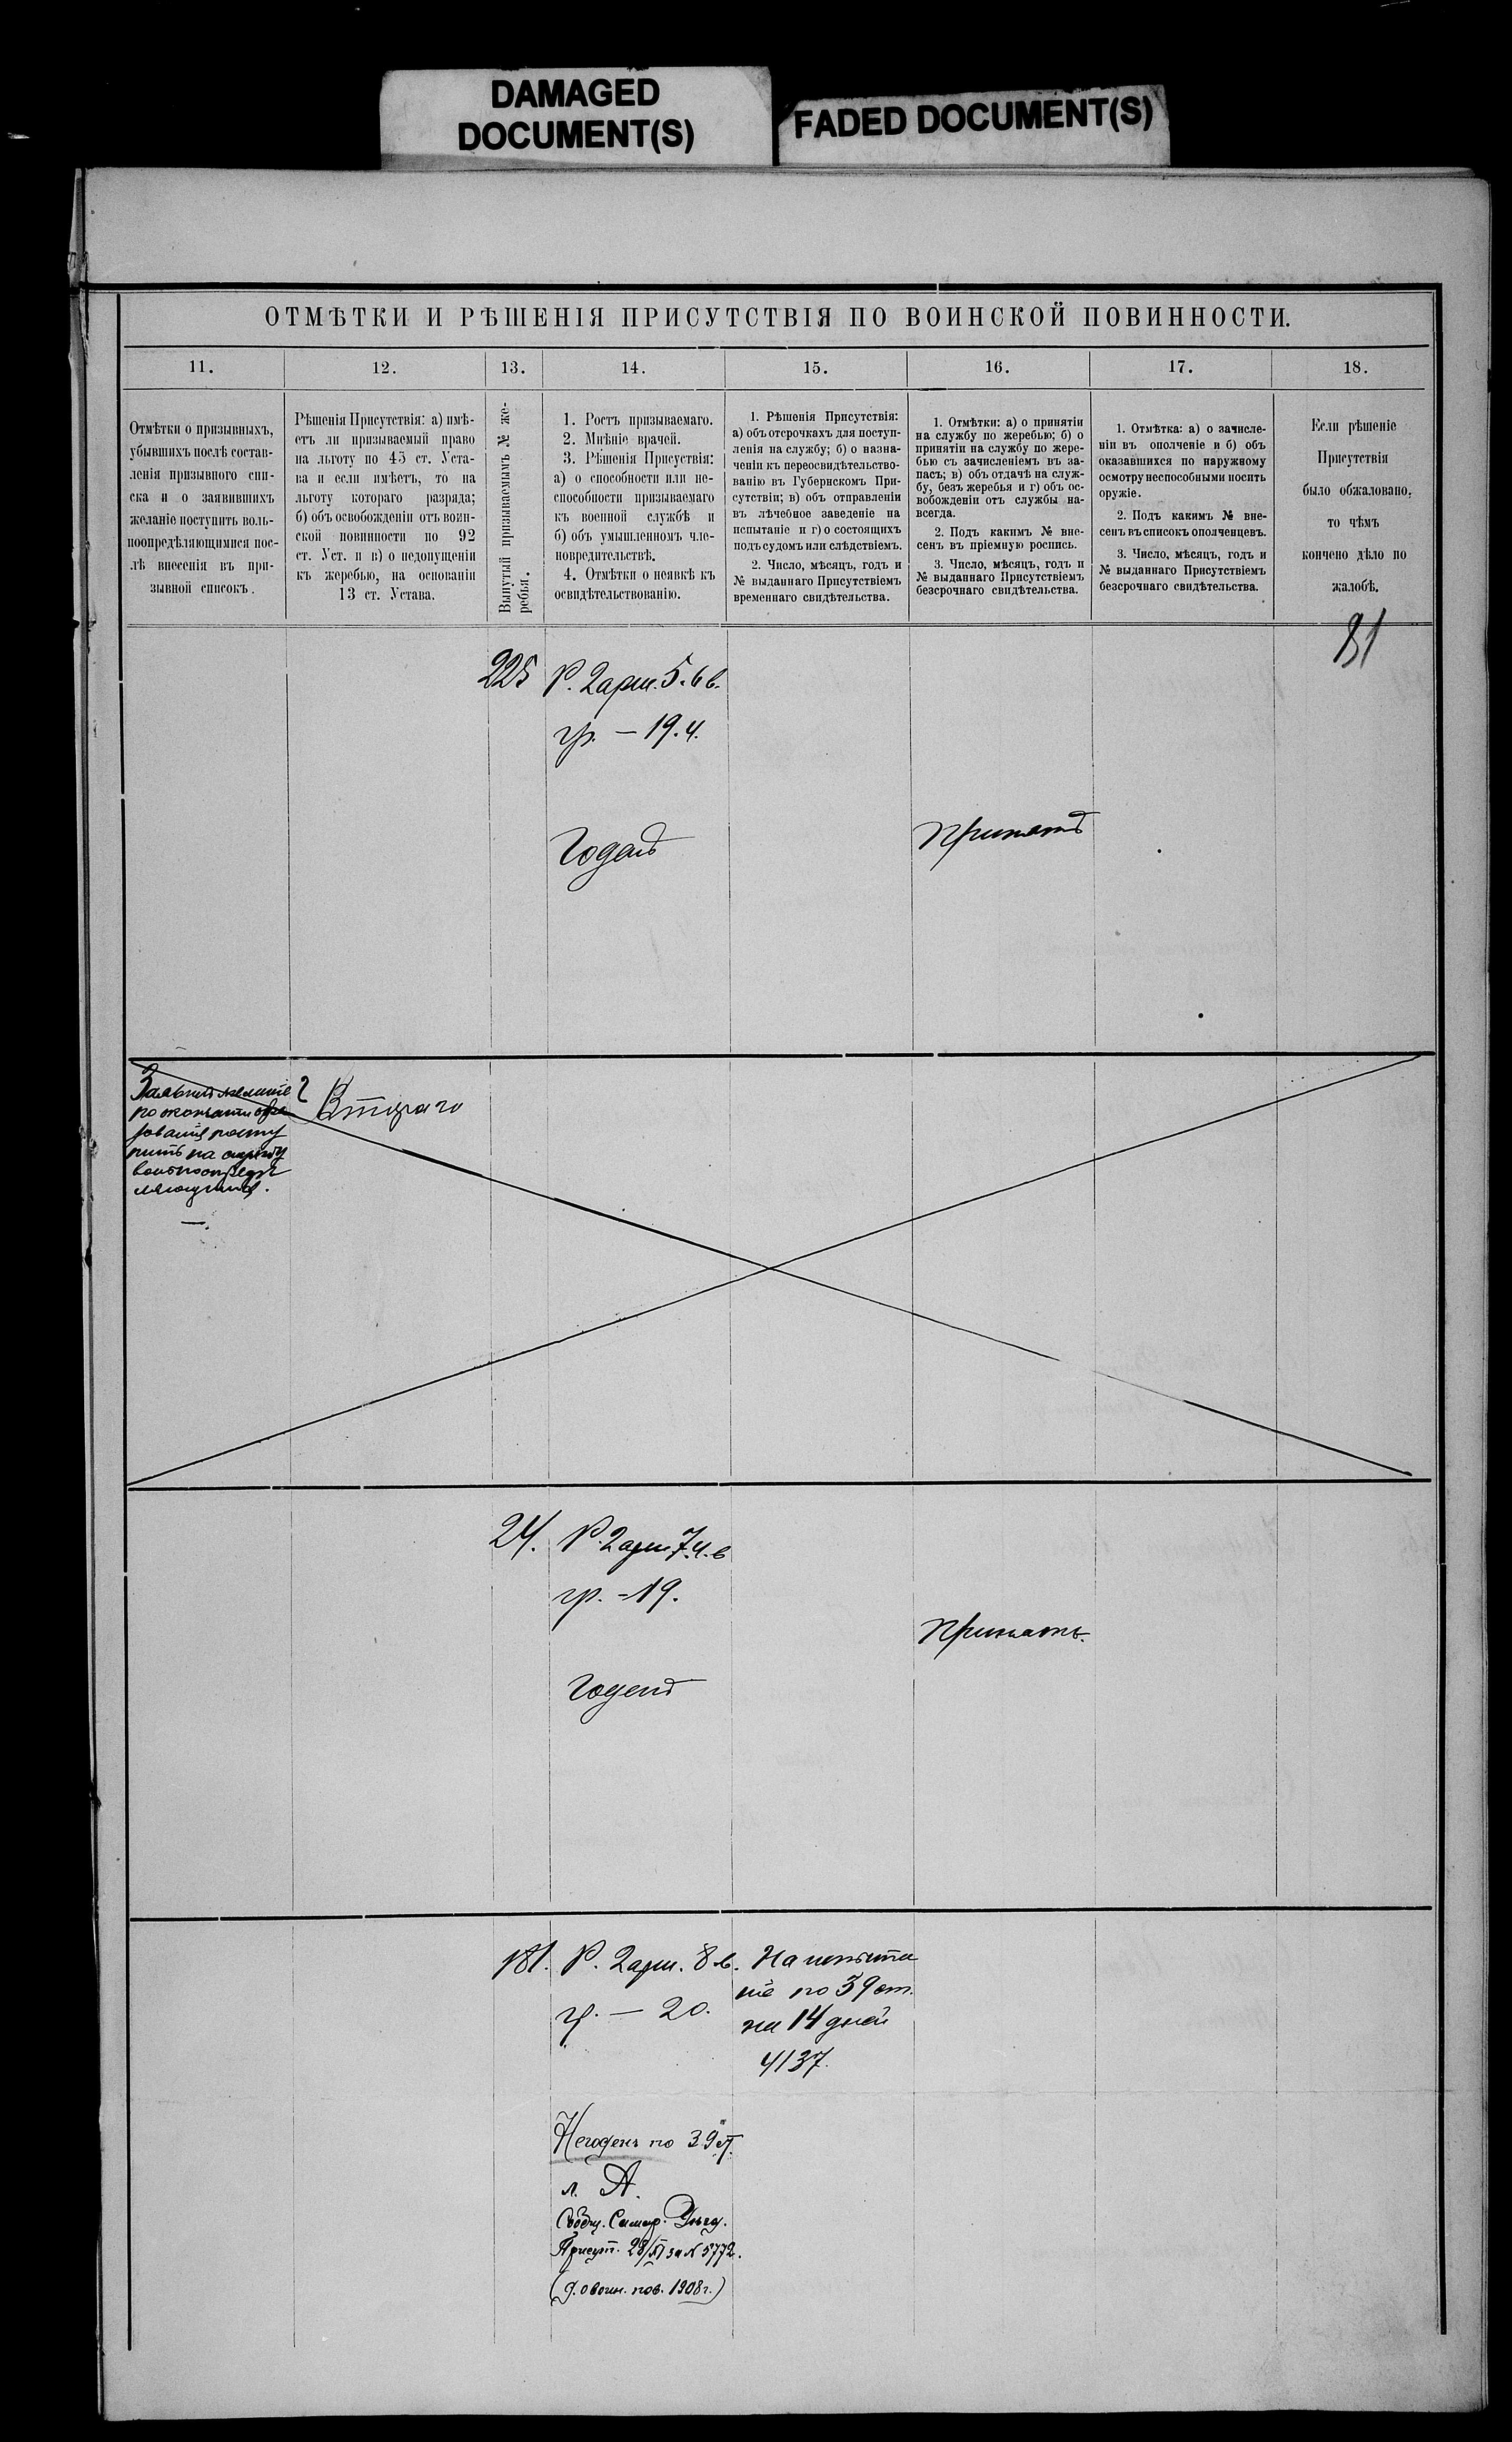 DAMAGED
DOCUMENT(S)
FADED DOCUMENT(S)
ОТМѢТКИ И РѢШЕНІЯ ПРИСУТСТВІЯ ПО ВОИНСКОЙ ПОВИННОСТИ.
11.
12.
13.
14.
15.
16.
17.
18.
Отмѣтки о призывныхъ,
убывшихъ послѣ состав-
ленія призывного спи-
ска и о заявившихъ
желаніе поступить воль-
ноопредѣляющимися пос-
лѣ внесенія въ при-
зывной списокъ.
Рѣшенія Присутствія: а) имѣ-
етъ ли призываемый право
на льготу по 45 ст. Уста-
ва и если имѣетъ, то на
льготу котораго разряда;
б) объ освобожденіи отъ воин-
ской повинности по 92
ст. Уст. и в) о недопущеніи
къ жеребью, на основаніи
13 ст. Устава.
Вынутый призываемымъ № же-
ребья.
1. Ростъ призываемаго.
2. Мнѣніе врачей.
3. Рѣшенія Присуствія:
а) о способности или не-
способности призываемаго
къ военной службѣ и
б) объ умышленномъ чле-
новредительствѣ.
4. Отмѣтки о неявкѣ къ
освидѣтельствованію.
1. Рѣшенія Присутствія:
а) объ отсрочкахъ для поступ-
ленія на службу; б) о назна-
ченіи къ переосвидѣтельство-
ванію въ Губернскомъ При-
сутствіи; в) объ отправленіи
въ лѣчебное заведеніе на
испытаніе и г) о состоящихъ
подъ судомъ или слѣдствіемъ.
2. Число, мѣсяцъ, годъ и
№ выданнаго Присутствіемъ
временнаго свидѣтельства.
1. Отмѣтки: а) о принятіи
на службу по жеребью; б) о
принятіи на службу по жере-
бью съ зачисленіемъ въ за-
пасъ; в) объ отдачѣ на служ-
бу, безъ жеребья и г) объ ос-
вобожденіи отъ службы на-
всегда.
2. Подъ какимъ № вне-
сенъ въ пріемную роспись.
3. Число, мѣсяцъ, годъ и
№ выданнаго Присутствіемъ
безсрочнаго свидѣтельства.
1. Отмѣтка: а) о зачисле-
ніи въ ополченіе и б) объ
оказавшихся по наружному
осмотру неспособными носить
оружіе.
2. Подъ какимъ № вне-
сенъ въ списокъ ополченцевъ.
3. Число, мѣсяцъ, годъ и
№ выданнаго Присутствіемъ
безсрочнаго свидѣтельства.
Если рѣшеніе
Присутствія
было обжаловано,
то чѣмъ
кончено дѣло по
жалобѣ.
225
Р. 2 арш. 5.6 в.
гр. — 19.4.
Годенъ
Принятъ
Заявилъ желаніе
по окончаніи обра
зованія посту
пить на службу
вольноопредѣ
ляющимся.
Втораго
24.
Р. 2 арш 7.4. в
гр. - 19.
Годенъ
Принятъ.
181.
Р. 2 арш. 8 в.
гр. — 20.
На испыта
ніе по 39 ст.
на 14 дней
4137.
Негоденъ по 39 ст.
л. А.
Сообщ. Самар. Уѣзд.
Присут. 28/XI за № 5772.
(Д. о воин. пов. 1908 г.)